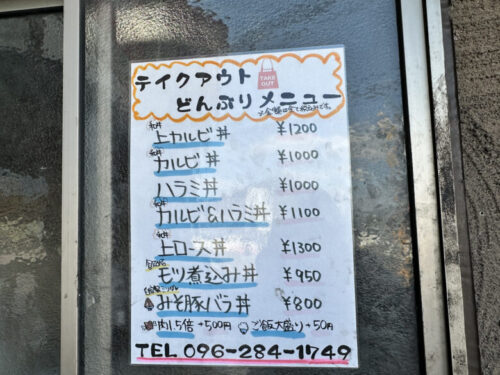 テイクアウト
TAKE OUT
どんぶりメニュー
上カルビ丼 ¥1200
カルビ丼 ¥1000
ハラミ丼 ¥1000
カルビ&ハラミ丼 ¥1100
上ロース丼 ¥1300
モツ煮込み丼 ¥950
みそ豚バラ丼 ¥800
肉1.5倍→+500円 ご飯大盛り→+50円
TEL 096-284-1749